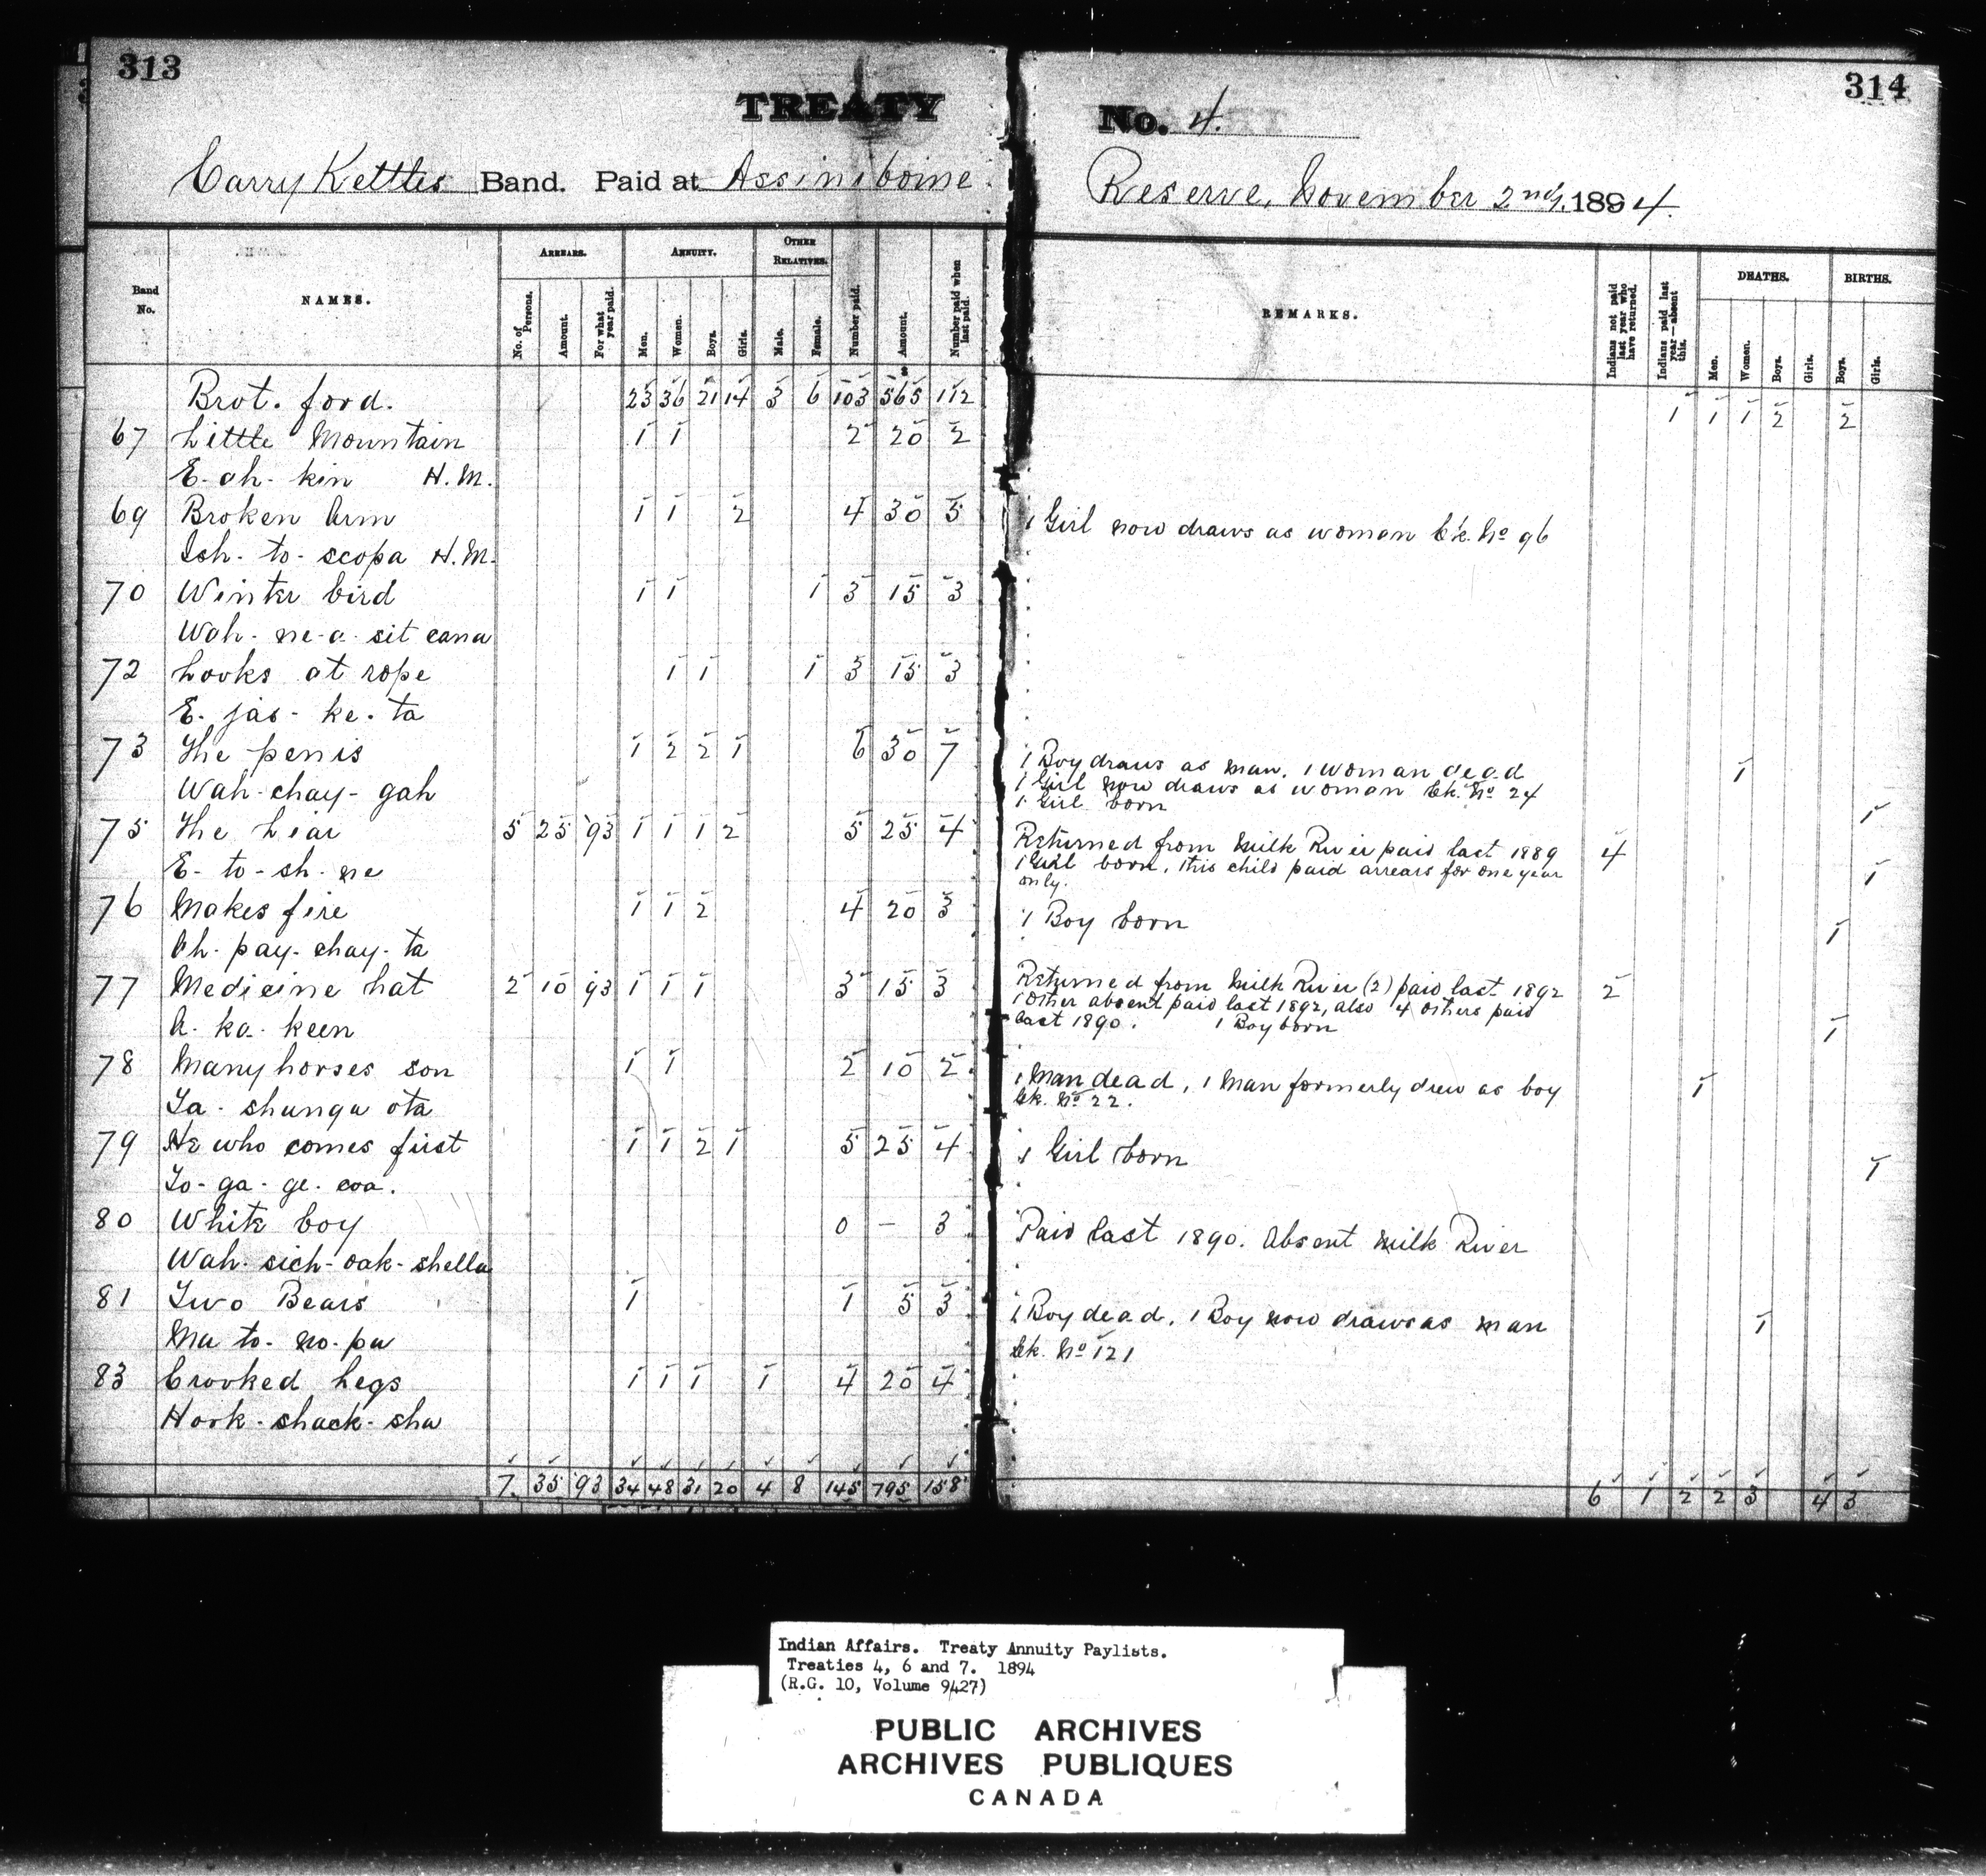 313
314
TREATY No. 4.
Carry Kettles Band. Paid at Assiniboine Reserve, November 2nd, 1894.
Band No. NAMES. ARREARS. No. of Persons. Amount. For what year paid. ANNUITY. Men. Women. Boys. Girls. OTHER RELATIVES. Male. Female. Number paid. Amount. Number paid when last paid. REMARKS. Indians not paid last year who have returned. Indians paid last year—absent this. DEATHS. Men. Women. Boys. Girls. BIRTHS. Boys. Girls.
Brot. ford. 23 36 21 14 3 6 103 565 112 1 1 1 2 2
67 Little Mountain 1 1 2 20 2
E-ah-kin H.M.
69 Broken Arm 1 1 2 4 30 5 1 Girl now draws as woman tk. No 96
Ish-to-scopa H.M.
70 Winter bird 1 1 1 3 15 3
Wah-ne-a-sit cana
72 Looks at rope 1 1 1 3 15 3
E-jas-ke-ta
73 The penis 1 2 2 1 6 30 7 1 Boy draws as man. 1 woman dead 1
Wah-chay-gah 1 Girl now draws as woman tk. No 24
1 Girl born 1
75 The Liar 5 25 '93 1 1 1 2 5 25 4 Returned from Milk River paid last 1889 4
E-to-sh-ne 1 Girl born, this child paid arrears for one year 1
only.
76 Makes fire 1 1 2 4 20 3 1 Boy born 1
Oh-pay-chay-ta
77 Medicine hat 2 10 93 1 1 1 3 15 3 Returned from Milk River (2) paid last 1892 2
1 other absent paid last 1892, also 4 others paid
A-ka-keen last 1890. 1 Boy born 1
78 Many horses son 1 1 2 10 2 1 Man dead, 1 Man formerly drew as boy 1
Ta-shunga ota tk. No 22.
79 He who comes first 1 1 2 1 5 25 4 1 Girl born 1
To-ga-ge-coa.
80 White boy 0 — 3 Paid last 1890. Absent Milk River
Wah-sich-oak-shella
81 Two Bears 1 1 5 3 1 Boy dead, 1 Boy now draws as man 1
Ma-to-no-pa tk. No 121
83 Crooked Legs 1 1 1 1 4 20 4
Hook-shack-sha
7 35 93 34 48 31 20 4 8 145 795 158 6 1 2 2 3 4 3
Indian Affairs. Treaty Annuity Paylists.
Treaties 4, 6 and 7. 1894
(R.G. 10, Volume 9427)
PUBLIC ARCHIVES
ARCHIVES PUBLIQUES
CANADA